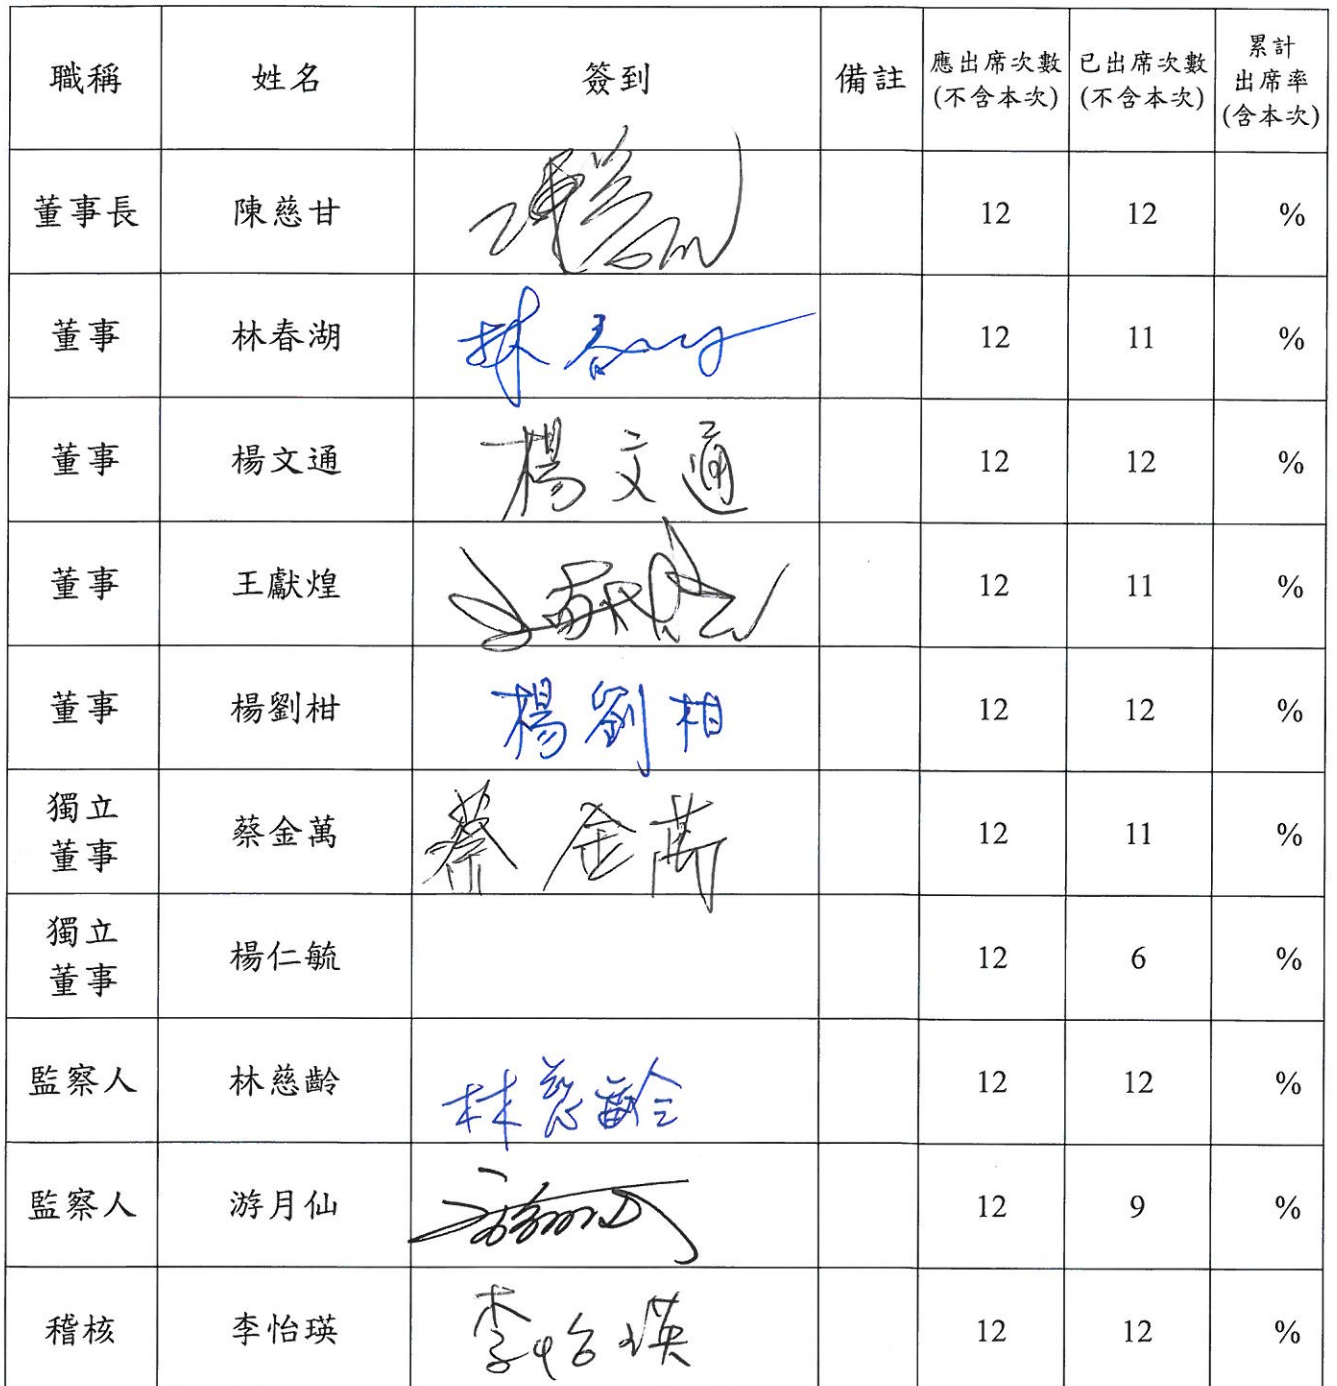 職稱 姓名 簽到 備註 應出席次數(不含本次) 已出席次數(不含本次) 累計出席率(含本次)
董事長 陳慈甘 12 12 %
董事 林春湖 林春 12 11 %
董事 楊文通 楊文通 12 12 %
董事 王獻煌 12 11 %
董事 楊劉柑 楊劉柑 12 12 %
獨立董事 蔡金萬 蔡金萬 12 11 %
獨立董事 楊仁毓 12 6 %
監察人 林慈齡 林慈齡 12 12 %
監察人 游月仙 12 9 %
稽核 李怡瑛 李怡瑛 12 12 %